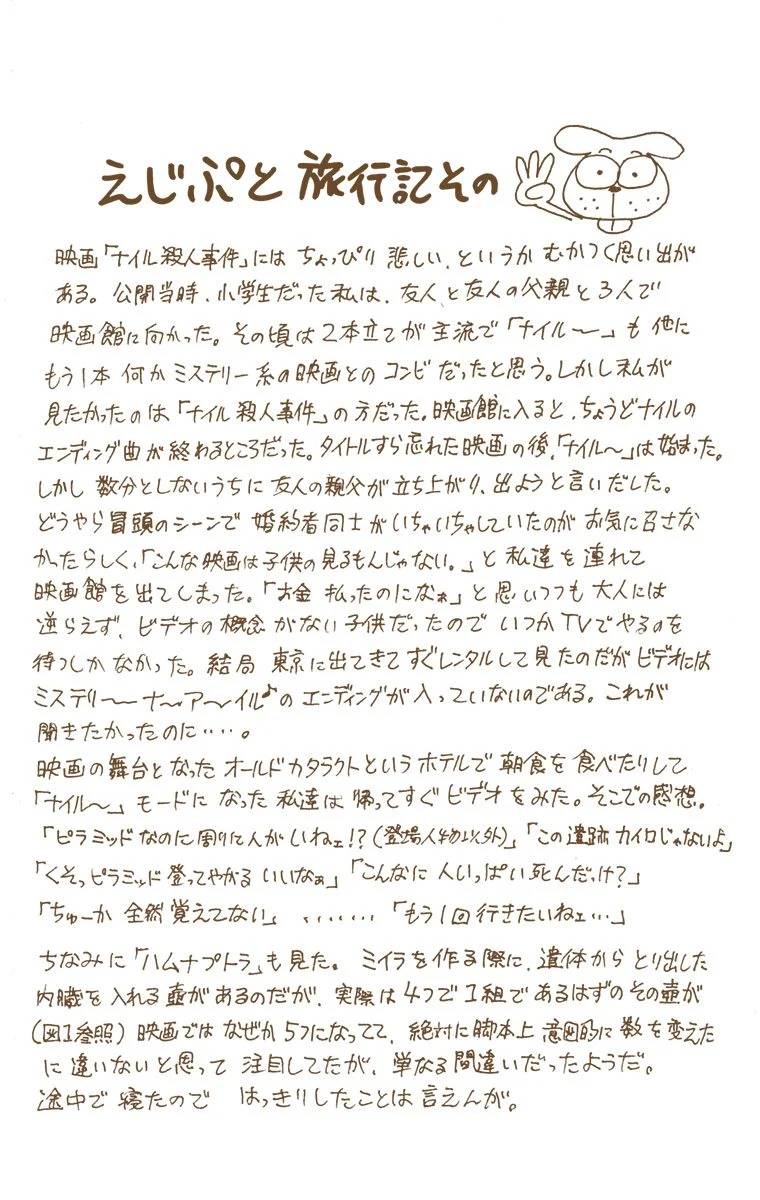 えじぷと旅行記その
映画「ナイル殺人事件」には ちょっぴり 悲しい、というか むかつく思い出が
ある。公開当時、小学生だった私は、友人と友人の父親と3人で
映画館に向かった。その頃は2本立てが主流で「ナイル〜」も他に
もう1本 何かミステリー系の映画とのコンビだったと思う。しかし私が
見たかったのは「ナイル殺人事件」の方だった。映画館に入ると、ちょうどナイルの
エンディング曲が終わるところだった。タイトルすら忘れた映画の後、「ナイル〜」は始まった。
しかし 数分としないうちに 友人の親父が立ち上がり、出ようと言いだした。
どうやら冒頭のシーンで 婚約者同士がいちゃいちゃしていたのが お気に召さな
かったらしく、「こんな映画は子供の見るもんじゃない。」と 私達を連れて
映画館を出てしまった。「お金 払ったのになぁ」と思いつつも 大人には
逆らえず、ビデオの概念がない子供だったので いつかTVでやるのを
待つしかなかった。結局 東京に出てきてすぐレンタルして見たのだが ビデオには
ミステリ〜〜ナ〜ア〜イル♪の エンディングが入っていないのである。これが
聞きたかったのに‥‥。
映画の舞台となった オールドカタラクトというホテルで 朝食を食べたりして
「ナイル〜」モードになった 私達は 帰ってすぐ ビデオをみた。そこでの感想。
「ピラミッドなのに周りに人がいねェ!?(登場人物以外)」「この遺跡カイロじゃないよ」
「くそっピラミッド登ってやがる いいなぁ」「こんなに 人いっぱい死んだっけ?」
「ちゅーか 全然 覚えてない」 ‥‥‥‥ 「もう1回行きたいねェ…」
ちなみに「ハムナプトラ」も見た。ミイラを作る際に、遺体から とり出した
内臓を入れる壺があるのだが、実際は4つで1組であるはずのその壺が
(図1参照)映画では なぜか5つになってて、絶対に脚本上 意図的に数を変えた
に違いないと思って 注目してたが、単なる間違いだったようだ。
途中で寝たので はっきりしたことは言えんが。